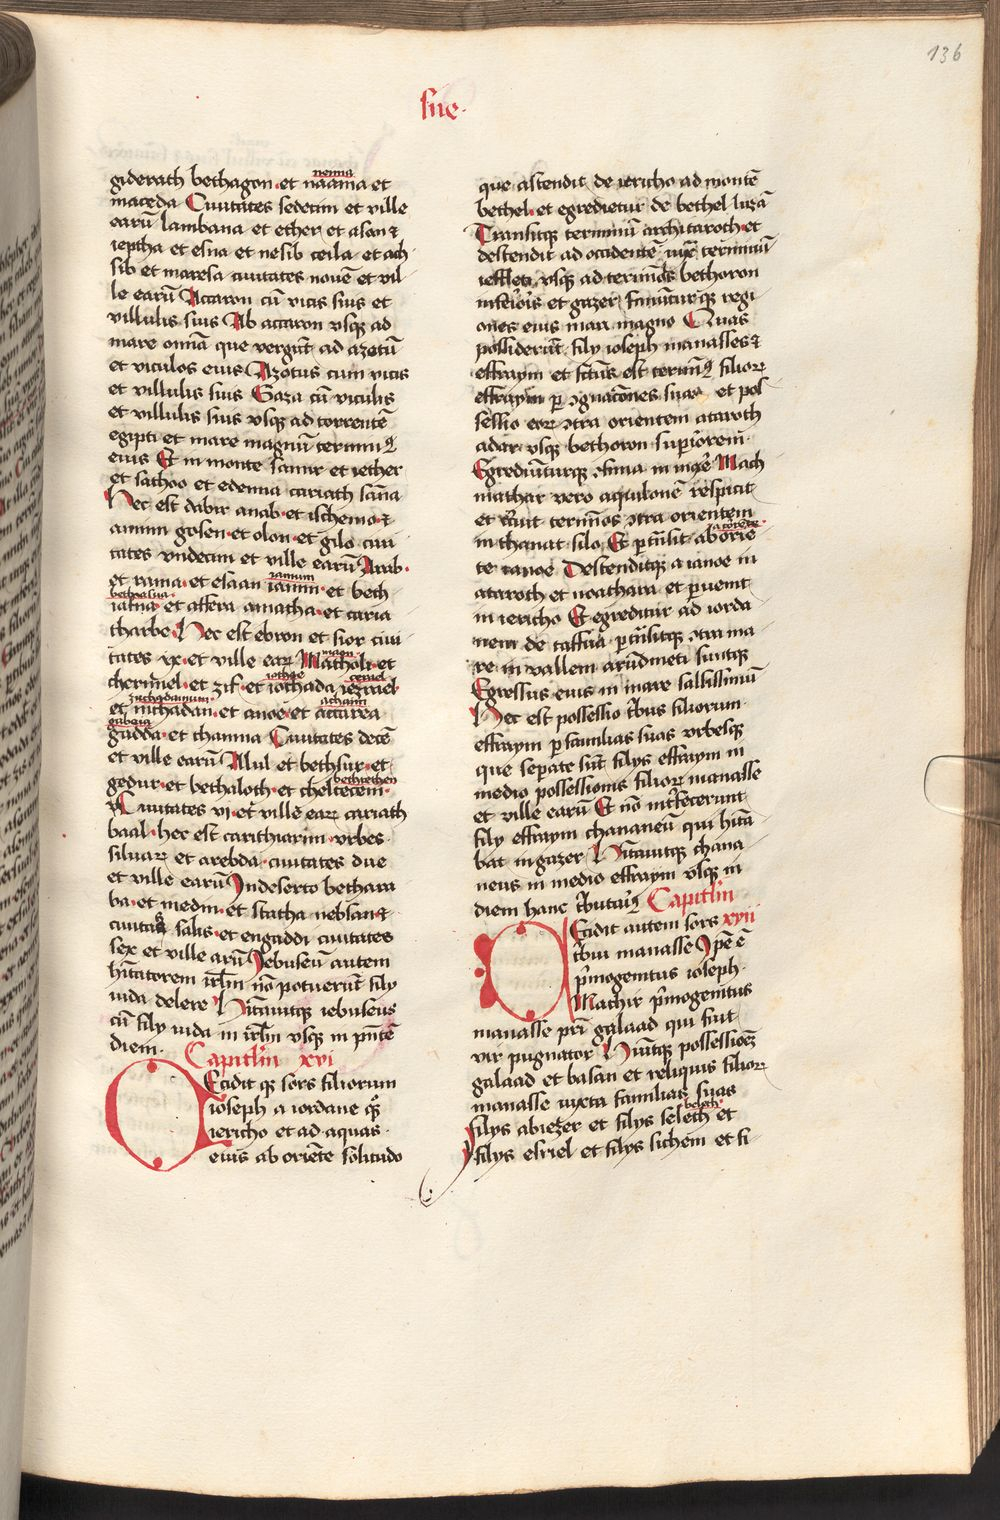 136
sue.
giderath bethagon et naama et
nenna
maceda Ciuitates sedecim et ville
earū lambana et ether et asan et
ieptha et esna et nesib ceila et ach
sib et maresa ciuitates nouē et vil
le earū Accaron cū vicis suis et
villulis suis Ab accaron vsqꝫ ad
mare omīa que vergūt ad azotū
et viculos eius Azotus cum vicis
et villulis suis Gaza cū viculis
et villulis suis vsqꝫ ad torrentē
egipti et mare magnū terminꝰ qꝫ
eius Et in monte samir et iether
et sathoo et edenna cariath sāna
Hec est dabir anab et ischemo et
anim gosen et olon et gilo ciui
tates vndecim et ville earū Arab
et ruma et esaan iamin et beth
ianum
iafna et affera amatha et caria
bethaffua
tharbe Hec est ebron et sior ciui
tates ix et ville earꝫ Matholi et
maon
chermel et zif et iothada iezrael
iothae
et nichadan et anoe et accarea
zuchadamum
achaim
gudda et thamna Ciuitates decē
gabaia
et ville earū Alul et bethsur et
gedur et bethaloth et cheltecem
bethtechen
Ciuitates vi et ville earꝫ cariath
baal hec est caritharim vrbes
siluarꝫ et arebda ciuitates due
et ville earū In deserto bethara
ba et medin et scatha nebsan et
ciuitas salis et engaddi ciuitates
sex et ville arū Iebuseū autem
hītatorem irlm nō potuerūt filij
iuda delere Hītauitqꝫ iebuseus
cū filij iuda in irlm vsqꝫ in pn̄tē
diem.
Capitlm xvi
Cecidit qꝫ sors filiorum
ioseph a iordane qꝫ
iericho et ad aquas
eius ab oriēte solitudo
que ascendit de iericho ad montē
bethel et egredietur de bethel luzā
Transitqꝫ terminū architaroth et
descendit ad occidentē iuxᵃ terminū
iefleti vsqꝫ ad terminos bethoron
inferioris et gazer finiūturqꝫ regi
ones eius mari magno Quas
possiderūt filij ioseph manasses et
effraym et factus est terminꝰ filiorꝫ
effraym p cognatōnes suas et pos
sessio eorꝫ cōtra orientem ataroth
adar vsqꝫ bethoron superiorem
Egrediūturqꝫ cōfinia in mare Mach
mathar vero aquilonē respicit
et circuit terminos cōtra orientem
in thanat silo Et ptransit ab orie
te ianoe Descenditqꝫ a ianoe in
ataroth et noathara et peruenit
in iericho Et egreditur ad iorda
nem de taffua ptransitqꝫ cōtra ma
re in vallem arūdineti suntqꝫ
Egressus eius in mare salsissimū
Hec est possessio tribus filiorum
effraym p familias suas vrbesqꝫ
que separate sūt filijs effraym in
medio possessionis filiorꝫ manasse
et ville earū Et nō int̄fecerunt
filij effraym chananeū qui hita
bat in gazer Hītauitqꝫ chana
neus in medio effraym vsqꝫ in
diem hanc tributariꝰ Capitlm
Cecidit autem sors xvii
tribui manasse Ipē ē
pmogenitus ioseph
Machir pmogenitus
manasse pri galaad qui fuit
vir pugnator Hūitqꝫ possessionē
galaad et basan et reliquis filiorꝫ
manasse iuxta familias suas
filijs abiezer et filijs selech et
belech
filijs esriel et filijs sichem et fi